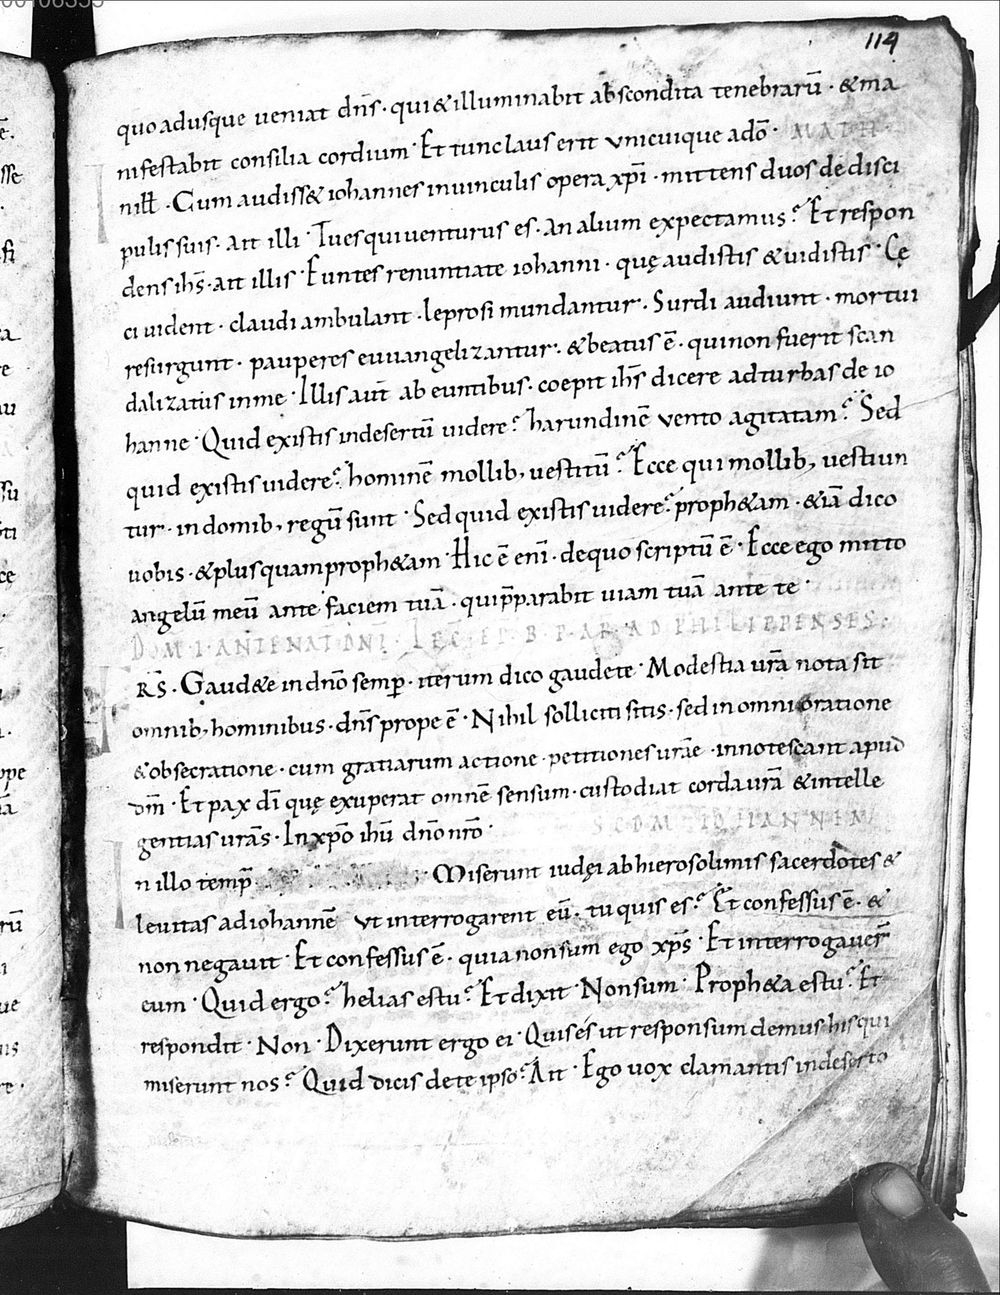 114
quoadusque ueniat dn̄s · qui & illuminabit abscondita tenebrarū · & ma
nifestabit consilia cordium · Et tunc laus erit vnicuique adō · MATH ·
n ill̄t · Cum audiss& iohannes inuinculis opera xp̄i · mittens duos de disci
pulis suis · ait illi · Tu es qui uenturus es · an alium expectamus? Et respon
dens ih̄s · ait illis · Euntes renuntiate iohanni · quę audistis & uidistis · Cę
ci uident · claudi ambulant · leprosi mundantur · Surdi audiunt · mortui
resurgunt · pauperes euuangelizantur · & beatus ē · qui non fuerit scan
dalizatus in me · Illis aūt ab euntibus · coepit ih̄s dicere ad turbas de io
hanne · Quid existis indesertū uidere? harundinē vento agitatam? Sed
quid existis uidere? hominē mollib, uestitū? Ecce qui mollib, uestiun
tur · in domib, regū sunt · Sed quid existis uidere? proph&am · & iā dico
uobis · & plus quam proph&am · Hic ē enī · de quo scriptū ē · Ecce ego mitto
angelū meū ante faciem tuā · qui p̄parabit uiam tuā ante te ·
DOM · I · ANTE NAT DN̄I · LEC̄ EP · B · P · AP · AD PHILIPPENSES ·
RS̄ · Gaud&e in dn̄o semp · iterum dico gaudete · Modestia urā nota sit
omnib, hominibus · dn̄s prope ē · Nihil solliciti sitis · sed in omni oratione
& obsecratione · cum gratiarum actione · petitiones urāe · innotescant apud
dm̄ · Et pax dī quę exuperat omnē sensum · custodiat corda urā & intelle
gentias urās · In xp̄o ihū dn̄o nrō · SCDM IOHANNEM
n illo temp̄ · Miserunt iudęi ab hierosolimis sacerdotes &
leuitas ad iohannē vt interrogarent eū · tu quis es? Et confessus ē · &
non negauit · Et confessus ē · quia non sum ego xp̄s · Et interrogauer̄
eum · Quid ergo? helias es tu? Et dixit · Non sum · Proph&a es tu? Et
respondit · Non · Dixerunt ergo ei · Quis és ut responsum demus his qui
miserunt nos? Quid dicis de te ipso? Ait · Ego uox clamantis in deserto